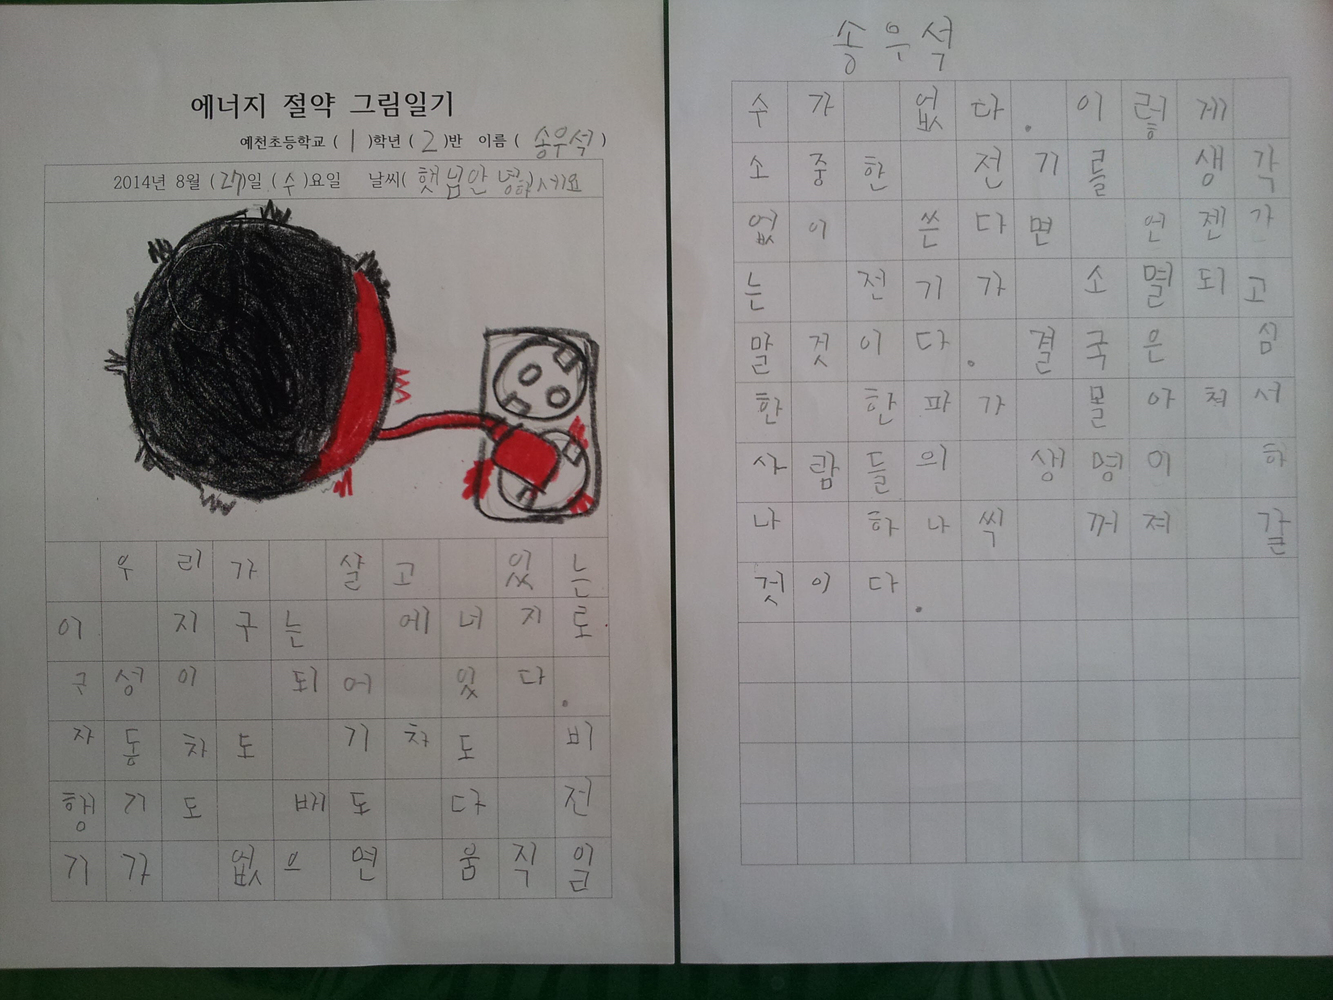 에너지 절약 그림일기
예천초등학교 ( 1 )학년 ( 2 )반 이름 ( 송우석 )
2014년 8월 (27)일 ( 수 )요일 날씨( 햇님안녕하)세요
우리가 살고 있는
이 지구는 에너지로
구성이 되어 있다.
자동차도 기차도 비
행기도 배도 다 전
기가 없으면 움직일
송우석
수가 없다. 이렇게
소중한 전기를 생각
없이 쓴다면 언젠가
는 전기가 소멸되고
말 것이다. 결국은 심
한 한파가 몰아쳐서
사람들의 생명이 하
나 하나씩 꺼져 갈
것이다.